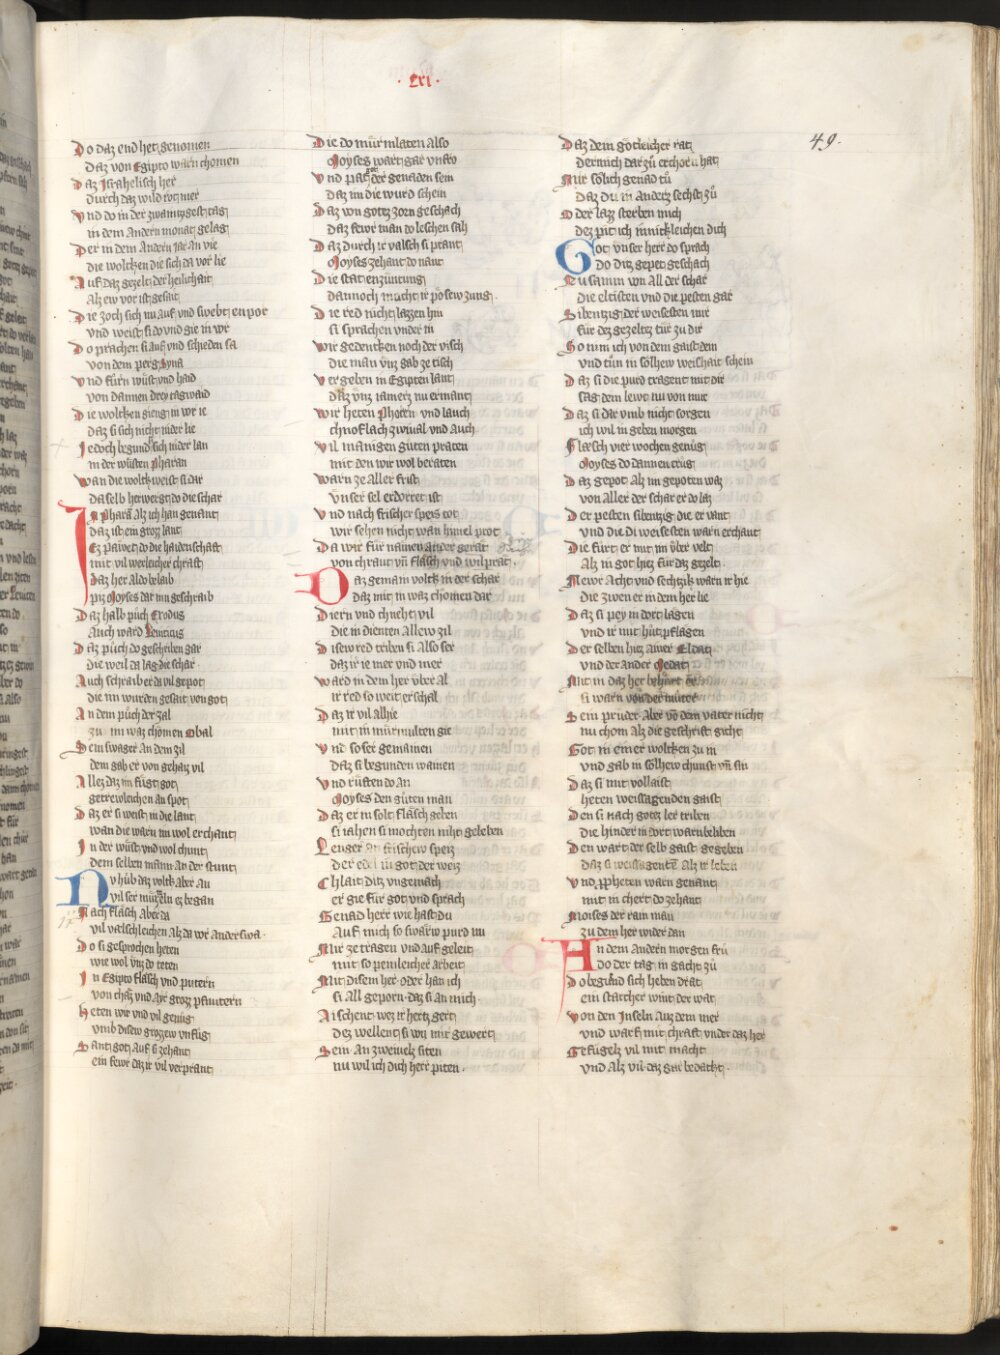 · LXI ·
49.
Do daz end het genomen
Daz von Egipto warn chomen
Daz Israhelisch her
durch daz wild rot mer
Vnd do in der zwaintzgest tag
in dem Andern monat gelag
Der in dem Andern iar an vie
die wolken die sich da vor lie
Auf daz gezelt der heilichait
Alz ew vor ist gesait
Die zoch sich nu auf vnd swebt enpor
vnd weist si do vnd gie in vor
Do prachen si auf vnd schieden sa
von dem perg Syna
Vnd fůrn wůst vnd haid
von dannen drey tagwaid
Die wolken gieng in vor ie
daz si sich nicht nider lie
Jedoch begund sich nider lan
in der wůsten Pharan
Wan die wolk weist si dar
da selb herwergt do die schar
In Pharā Alz ich han genant
daz ist ein groz lant
Ez pawet do die haidenschaft
mit vil werleicher chraft
Daz her Aldo belaib
piz Moyses dar inn geschraib
Daz halb půch Exodus
Auch ward Leuiticus
Daz půch do geschriben gar
die weil da lag die schar
Auch schraib er da vil gepot
die im wurden gesait von got
An dem půch der zal
zu im waz chomen Obal
Sein swager An dem zil
dem gab er von gehaiz vil
Allez daz im fůgt got
getrewleichen an spot
Daz er si weist in die lant
wan die warn im wol erchant
In der wůst vnd wol chunt
dem selben mann An der stunt
Nv hůb daz volk Aber An
vil ser můrmeln ez began
Nach flasch Aber da
vil valschleichen Alz da vor Anderswa
Do si gesprochen heten
wie wol vnz do teten
In Egipto flasch vnd putern
von chäs vnd Air groz phutern
Heten wir vnd vil genůg
vmb disew grozzew vnfůg
Sant got Auf si zehant
ein fewr daz ir vil verprant
Die do můrmlaten Also
Moyses wart gar vnfro
Vnd pat got der genaden sein
daz im die wurd schein
Daz von gotz zorn geschach
daz fewr man do leschen sah
Daz durch ir valsch si prant
Moyses zehant do nant
Die stat enzůntung
dannoch macht ir pösew zung
Die red nicht lazzen hin
si sprachen vnder in
Wir gedenken noch der visch
die man vnz gab ze tisch
Vergeben in Egipten lant
daz vnz iamerz nu ermant
Wir heten Phoren vnd lauch
chnoflach zwiual vnd Auch
Vil manigen gůten praten
mit den wir wol beraten
Warn ze aller frist
vnser sel erdorret ist
Vnd nach frischer speis tot
wir sehen nicht wan himel prot
Da wir fůr namen ander gerät
von chraut vn̄ flasch vnd wilprät
Daz gemain volk in der schar
Daz mit in waz chomen dar
Diern vnd chnecht vil
die in dienten Allew zil
Disew red triben si Also ser
daz ir ie mer vnd mer
Ward in dem her vber al
ir red so weit erschal
Daz ir vil alhie
mit in můrmulten gie
Vnd so ser gemainen
daz si begunden wainen
Vnd růften do An
Moyses den gůten man
Daz er in solt flasch geben
si iahen si mochten niht geleben
Lenger an frischew speiz
der edel in got der weiz
Chlait ditz vngemach
er gie fůr got vnd sprach
Genad herr wie hast du
Auf mich so swärw purd nu
Mir ze tragen vnd auf geleit
mit so peinleicher arbeit
Mit disem her oder han ich
si all geporn daz si An mich
Aischent wez ir hertz gert
dez wellent si von mir gewert
Sein An zweiuelz siten
nu wil ich dich herr piten
Daz dem götleicher rat
der mich dar zů erchorn hat
Mir sölich genad tů
Daz du in Anderz sechst zů
Oder laz sterben mich
dez pit ich innickleichen dich
Got vnser herr do sprach
do ditz gepet geschach
Nu samm von All der schar
die eltisten vnd die pesten gar
Sibentzig der weisesten mir
fůr dez gezeltz tůr zu dir
So nim ich von dem gaist dein
vnd tůn in sölhew weishait schein
Daz si die purd tragent mit dir
sag dem lewt nu von mir
Daz si dar vmb nicht sorgen
ich wil in geben morgen
Flasch vier wochen genůg
Moyses do dannen trůg
Daz gepot Alz im gepoten waz
von aller der schar er do laz
Der pesten sibentzig die er vant
vnd die di weisesten warn erchant
Die fůrt er mit im vber velt
Alz in got hiez fůr daz gezelt
Newr Acht vnd sechtzik warn ir hie
die zwen er in dem her lie
Daz si pey in dort lägen
vnd ir mit hůt pflägen
Der selben hiez ainer Eldat
vnd der ander Medat
Si warn von der můter
Sein průder Aber vō dem vater nicht
nu chom Alz die geschrift gicht
Got in einer wolken zu in
vnd gab in sölhew chunst vn̄ sin
Daz si mit vollaist
heten weissagenden gaist
Den si nach gotz ler triben
die hinder in dort warn beliben
Den wart der selb gaist gegeben
Vnd propheten warn genant
mit in chert do zehant
Moises der rain man
zu dem her wider dan
An dem Andern morgen frů
do der tag in gacht zů
Do begund sich heben drat
ein starcher wint der wat
Von den Inseln Auz dem mer
vnd warf mit chraft vnder daz her
Gefůgelz vil mit macht
vnd Alz vil daz gar bedacht